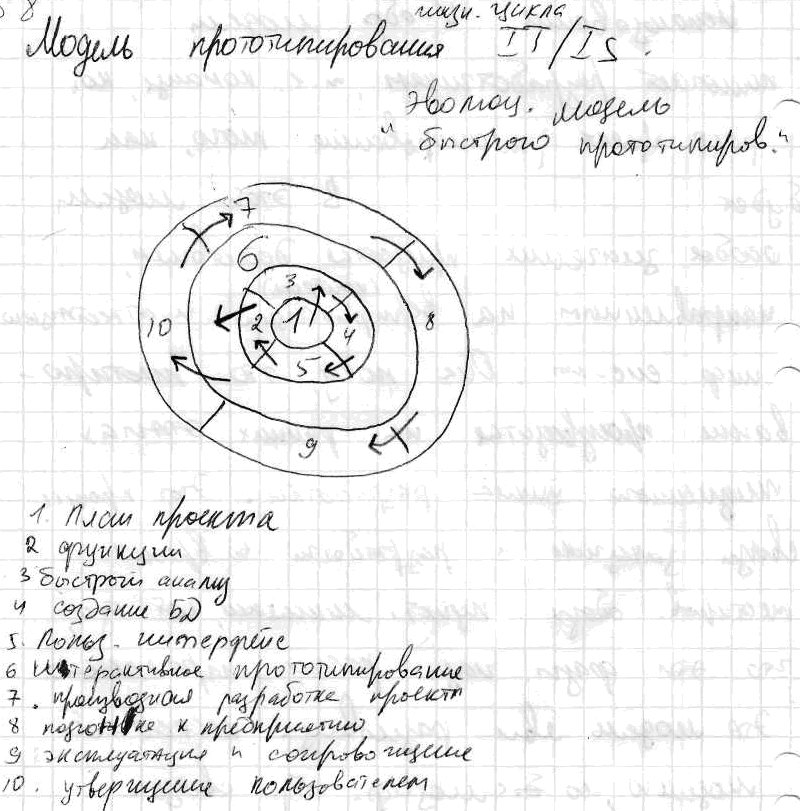 8
жизн. цикла
Модель прототипирования IT/IS.
эволюц. модель
"быстрого прототипиров."
7
6
3
10
2
1
4
8
5
9
1. План проекта
2 функции
3 быстрый анализ
4 создание БД
5. Польз. интерфейс
6 интерактивное прототипирование
7. производная разработка проекта
8 подгонке к предприятию
9 эксплуатация и сопровождение
10. утверждение пользователем